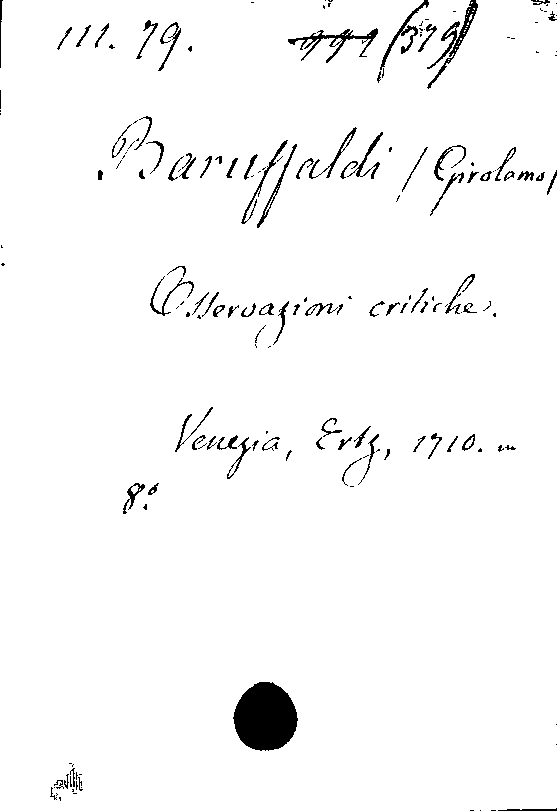 III. 79. 991 (379)
Baruffaldi (Girolamo)
Osservazioni critiche.
Venezia, Ertz, 1710. in
8°.